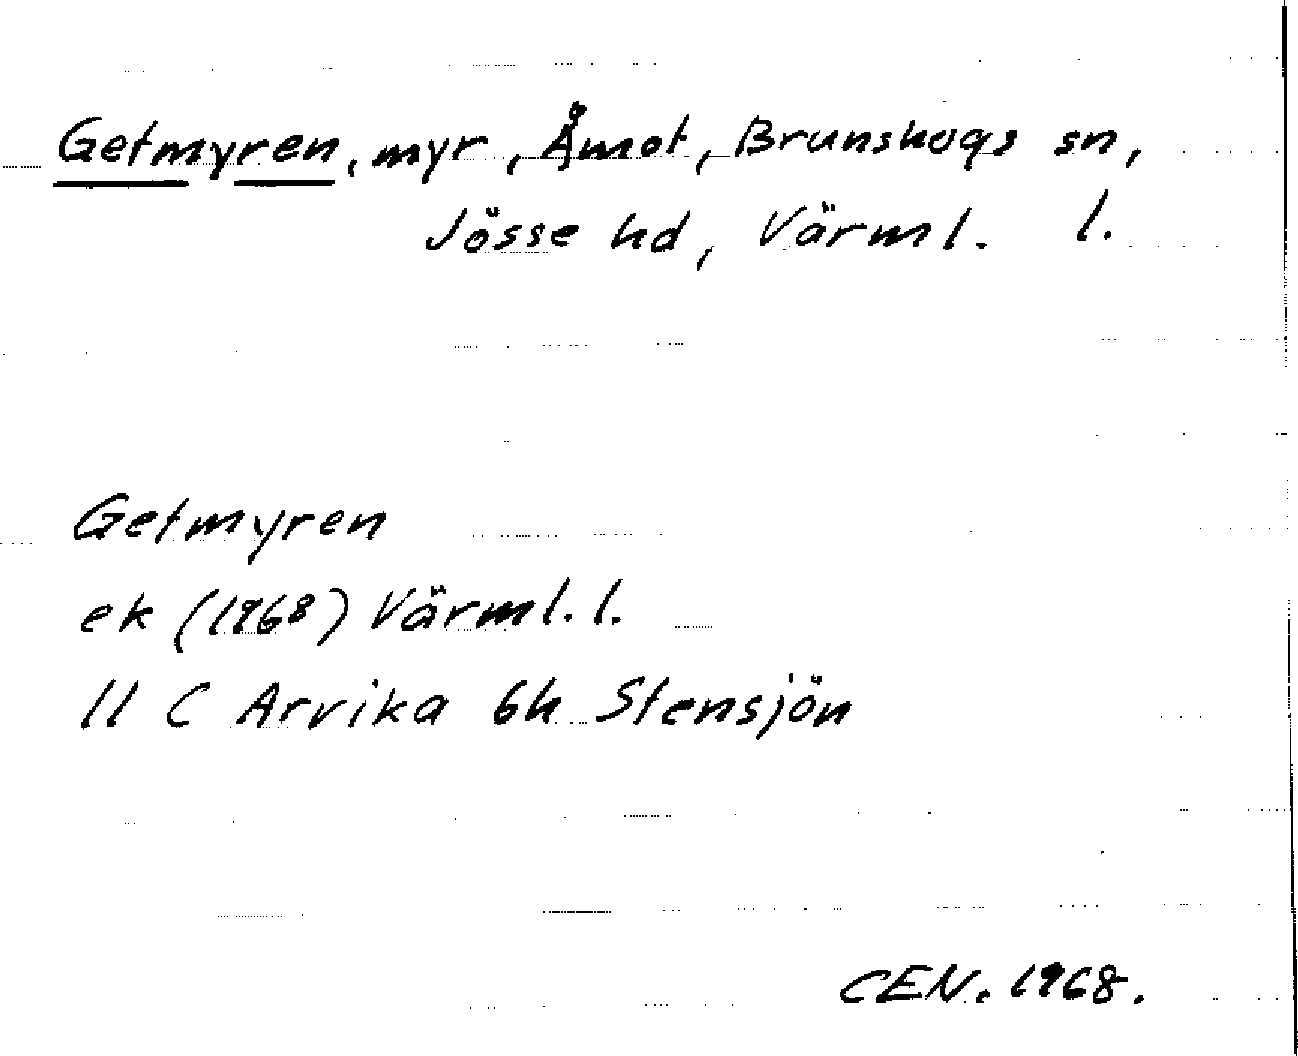 Getmyren, myr, Åmot, Brunskogs sn,
Jösse hd, Värml. l.
Getmyren
ek (1968) Värml. l.
11 C Arvika 6h Stensjön
CEN. 1968.